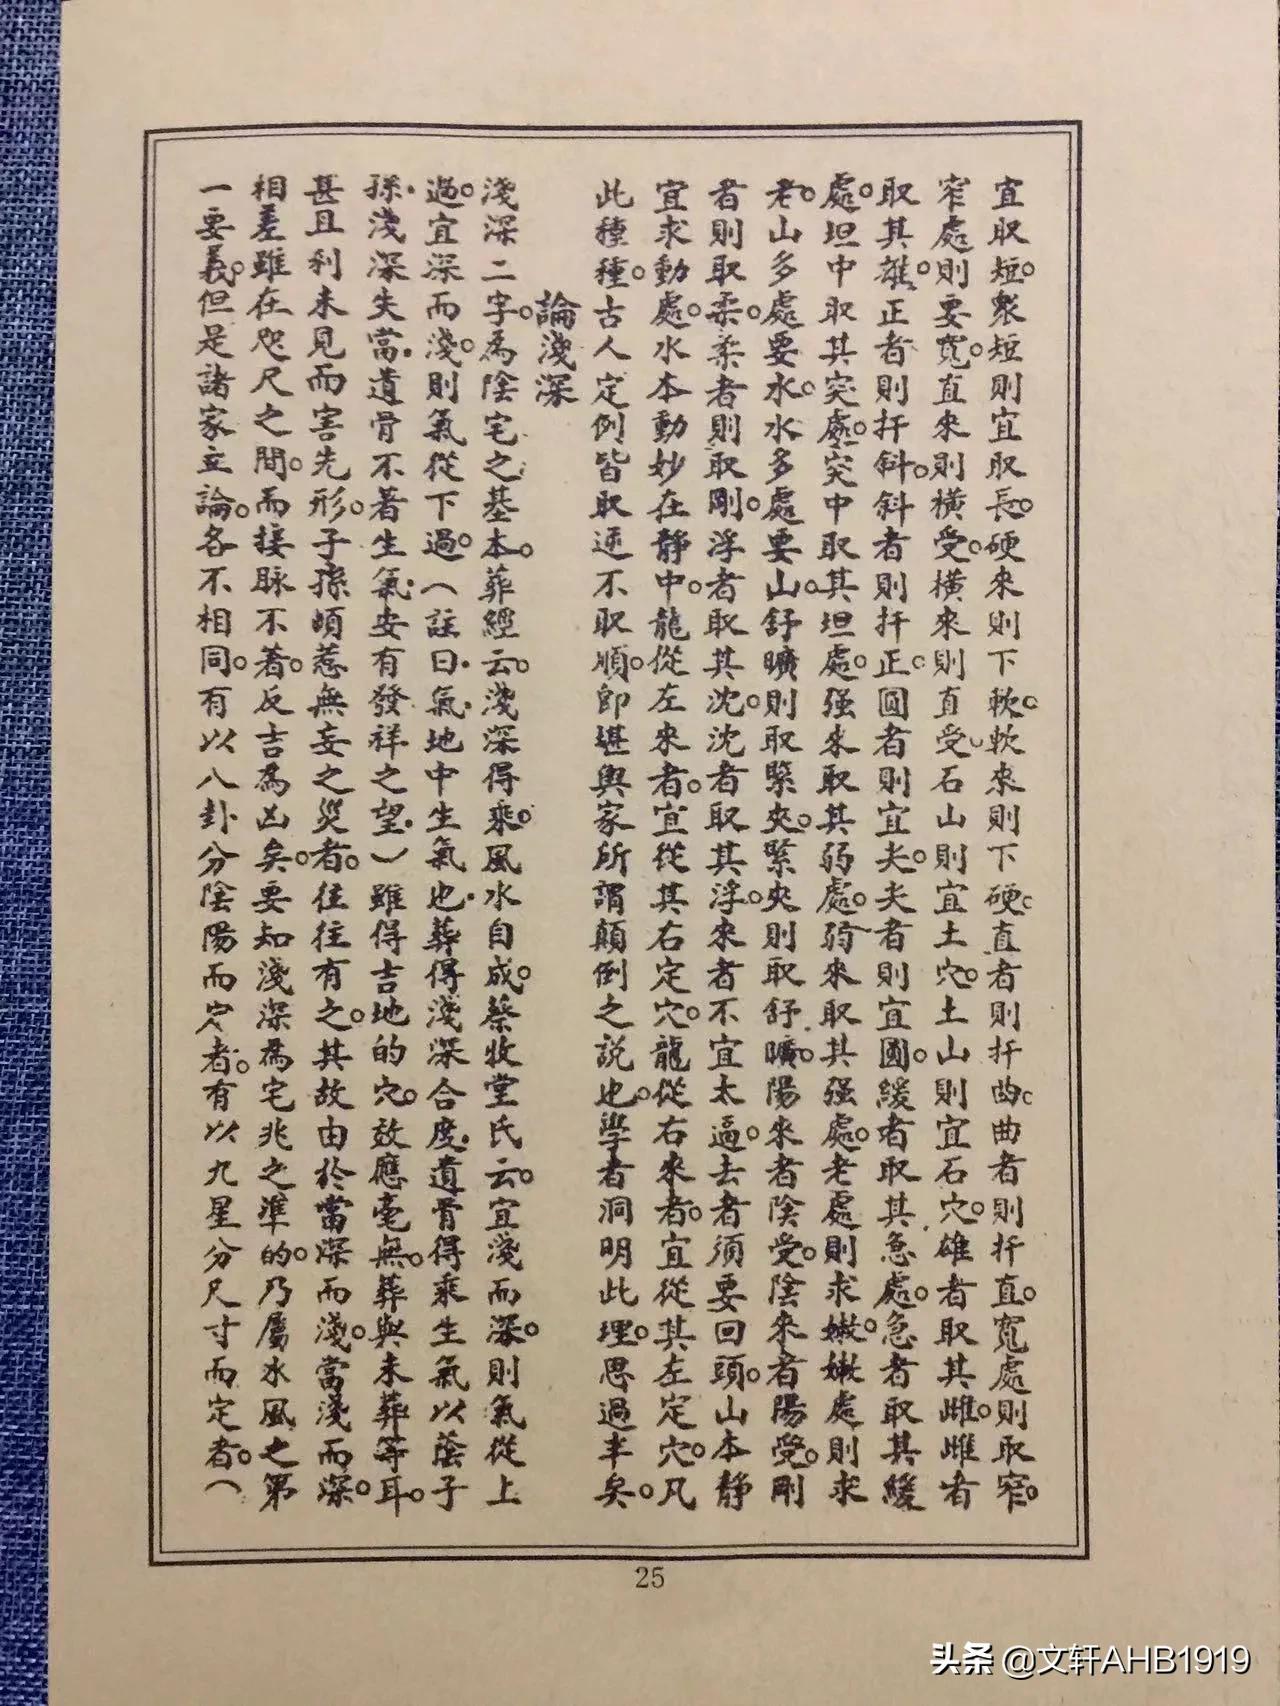 宜取短。衆短則宜取長。硬來則下軟。軟來則下硬。直者則扦曲。曲者則扦直。寬處則取窄。
窄處則要寬。直來則橫受。橫來則直受。石山則宜土穴。土山則宜石穴。雄者取其雌。雌者
取其雄。正者則扦斜。斜者則扦正。圓者則宜夫。夫者則宜圓。緩者取其急處。急者取其緩
處。坦中取其突處。突中取其坦處。强來取其弱處。弱來取其强處。老處則求嫩。嫩處則求
老。山多處要水。水多處要山。舒曠則取緊夾。緊夾則取舒曠。陽來者陰受。陰來者陽受。剛
者則取柔。柔者則取剛。浮者取其沈。沈者取其浮。來者不宜太逼。去者須要回頭。山本靜
宜求動處。水本動妙在靜中。龍從左來者。宜從其右定穴。龍從右來者。宜從其左定穴。凡
此種種。古人定例皆取逆不取順。卽堪輿家所謂顛倒之說也。學者洞明此理。思過半矣。
論淺深
淺深二字。為陰宅之基本。葬經云。淺深得乘。風水自成。蔡牧堂氏云。宜淺而深。則氣從上
過。宜深而淺。則氣從下過。（註曰。氣。地中生氣也。葬得淺深合度。遺骨得乘生氣以蔭子
孫。淺深失當。遺骨不著生氣。安有發祥之望。）雖得吉地的穴。效應毫無。葬與未葬等耳。
甚且利未見而害先形。子孫頃惹無妄之災者。往往有之。其故由於當深而淺。當淺而深。
相差雖在咫尺之間。而接脉不著。反吉為凶矣。要知淺深為宅兆之準的。乃屬水風之第
一要義。但是諸家立論。各不相同。有以八卦分陰陽而穴者。有以九星分尺寸而定者。（
25
头条 @文轩AHB1919